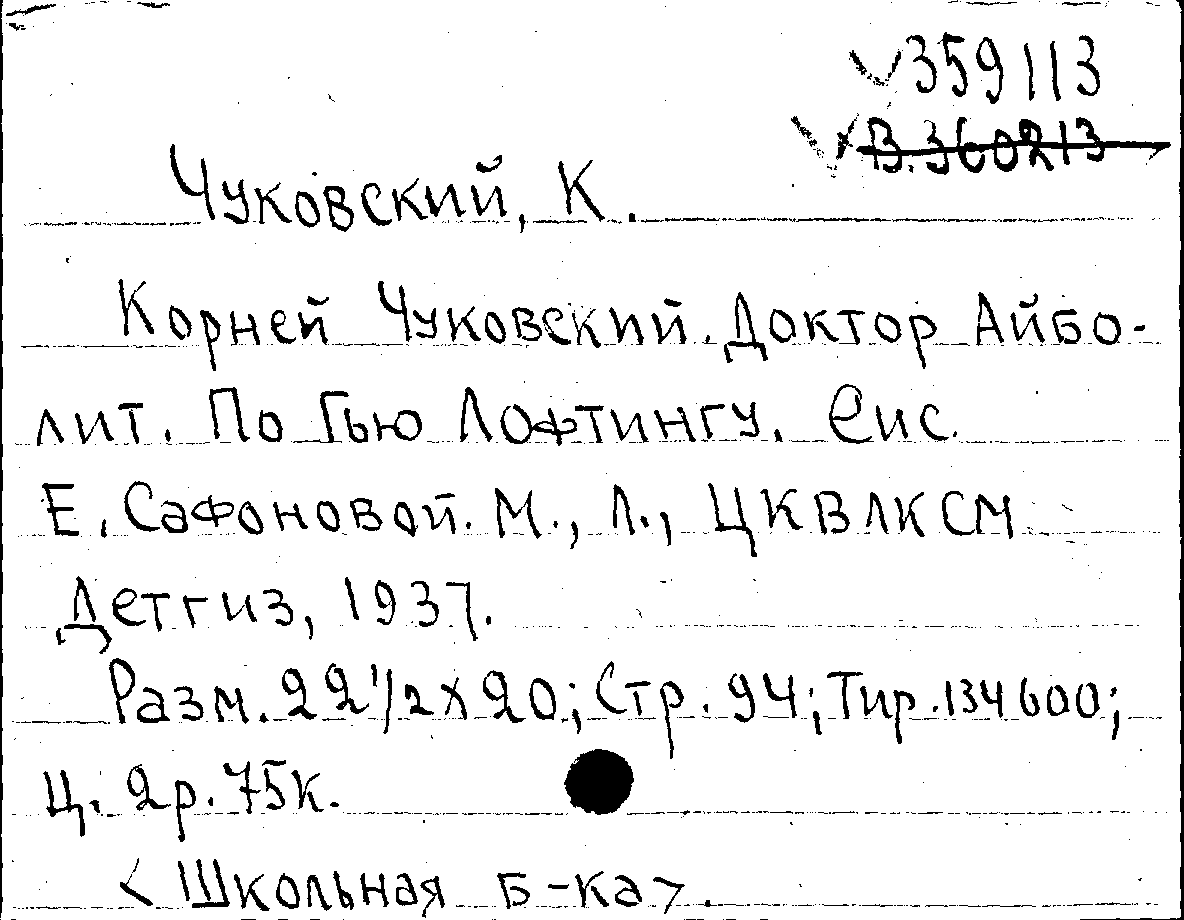 √359113
√В.360213
Чуковский, К.
Корней Чуковский. Доктор Айбо-
лит. По Гью Лофтингу. Рис.
Е. Сафоновой. М., Л., ЦКВЛКСМ
Детгиз, 1937.
Разм. 22 1/2 х 20; Стр. 94; Тир. 134600;
Ц. 2р. 75к.
<Школьная б-ка>.